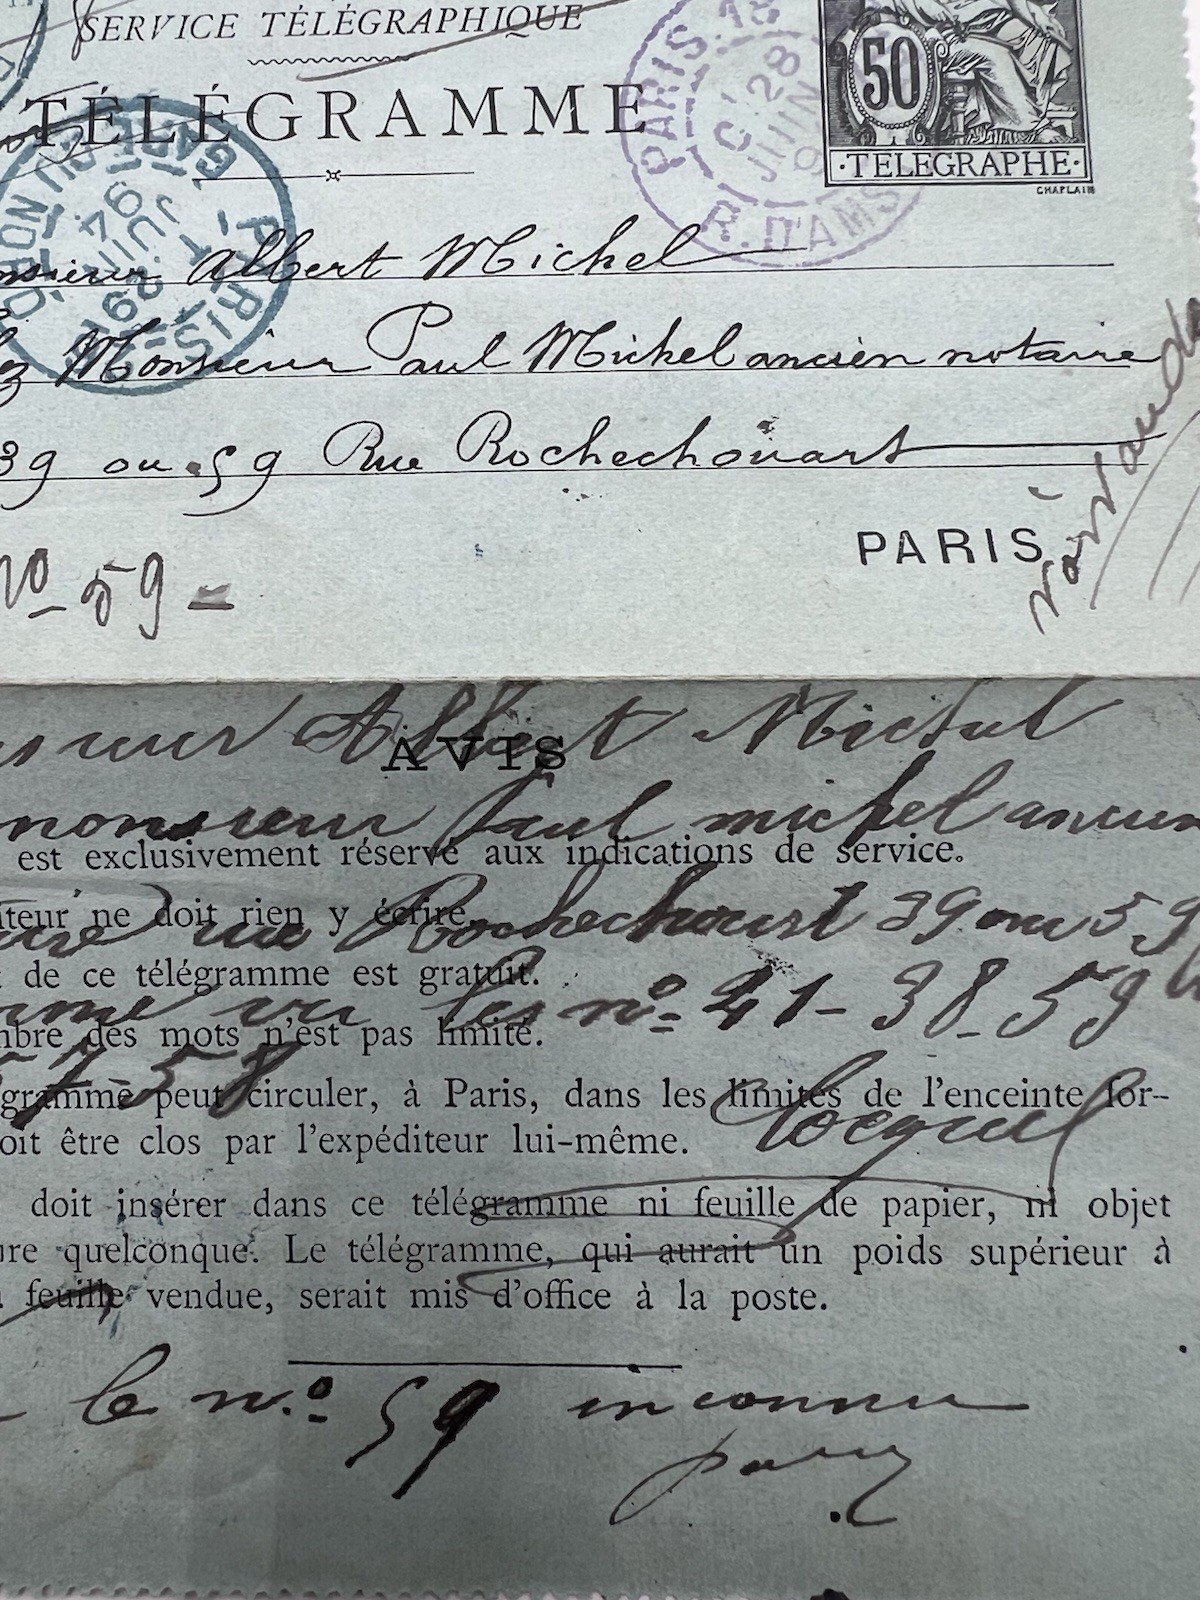 SERVICE TÉLÉGRAPHIQUE
TÉLÉGRAMME
50
·TELEGRAPHE·
CHAPLAIN
PARIS 18
28
JUIN
9
R. D'AMS
PARIS
GARE DU NORD
29
JUIN
94
nsieur Albert Michel
ez Monsieur Paul Michel ancien notaire
39 ou 59 Rue Rochechouart
PARIS
No 59 -
sieur Albert Michel
AVIS
monsieur Paul michel ancien
est exclusivement réservé aux indications de service.
iteur ne doit rien y écrire.
rue Rochechouart 39 ou 59
de ce télégramme est gratuit.
vu les no. 41-38-59
mbre des mots n'est pas limité.
57-58
gramme peut circuler, à Paris, dans les limites de l'enceinte for-
oit être clos par l'expéditeur lui-même.
doit insérer dans ce télégramme ni feuille de papier, ni objet
ure quelconque. Le télégramme, qui aurait un poids supérieur à
feuille vendue, serait mis d'office à la poste.
le no. 59 inconnu